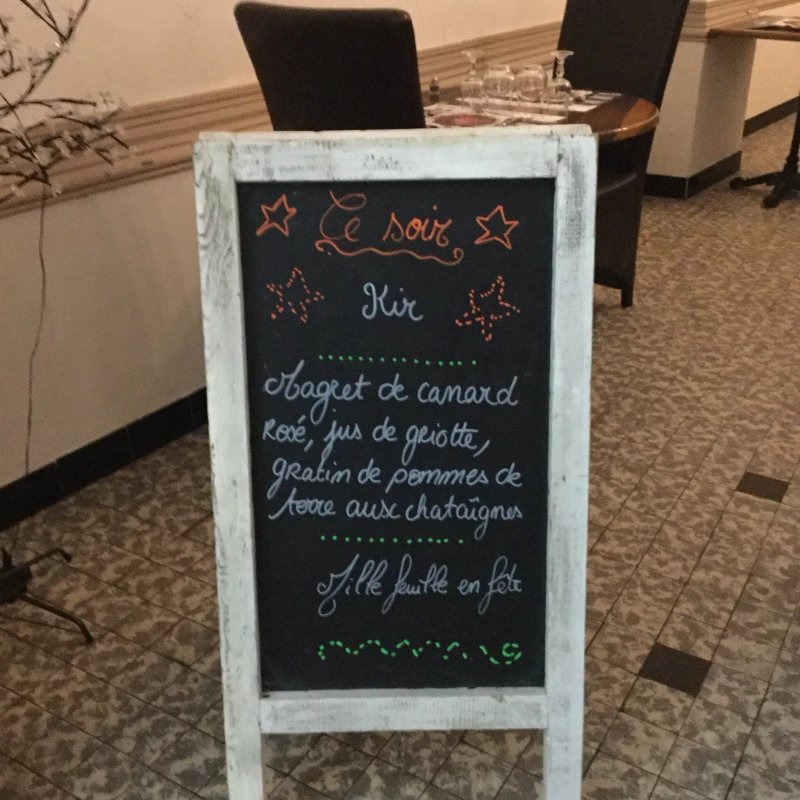 Ce soir
Kir
Magret de canard
Rosé, jus de griotte,
gratin de pommes de
terre aux chataîgnes
Mille feuille en fête